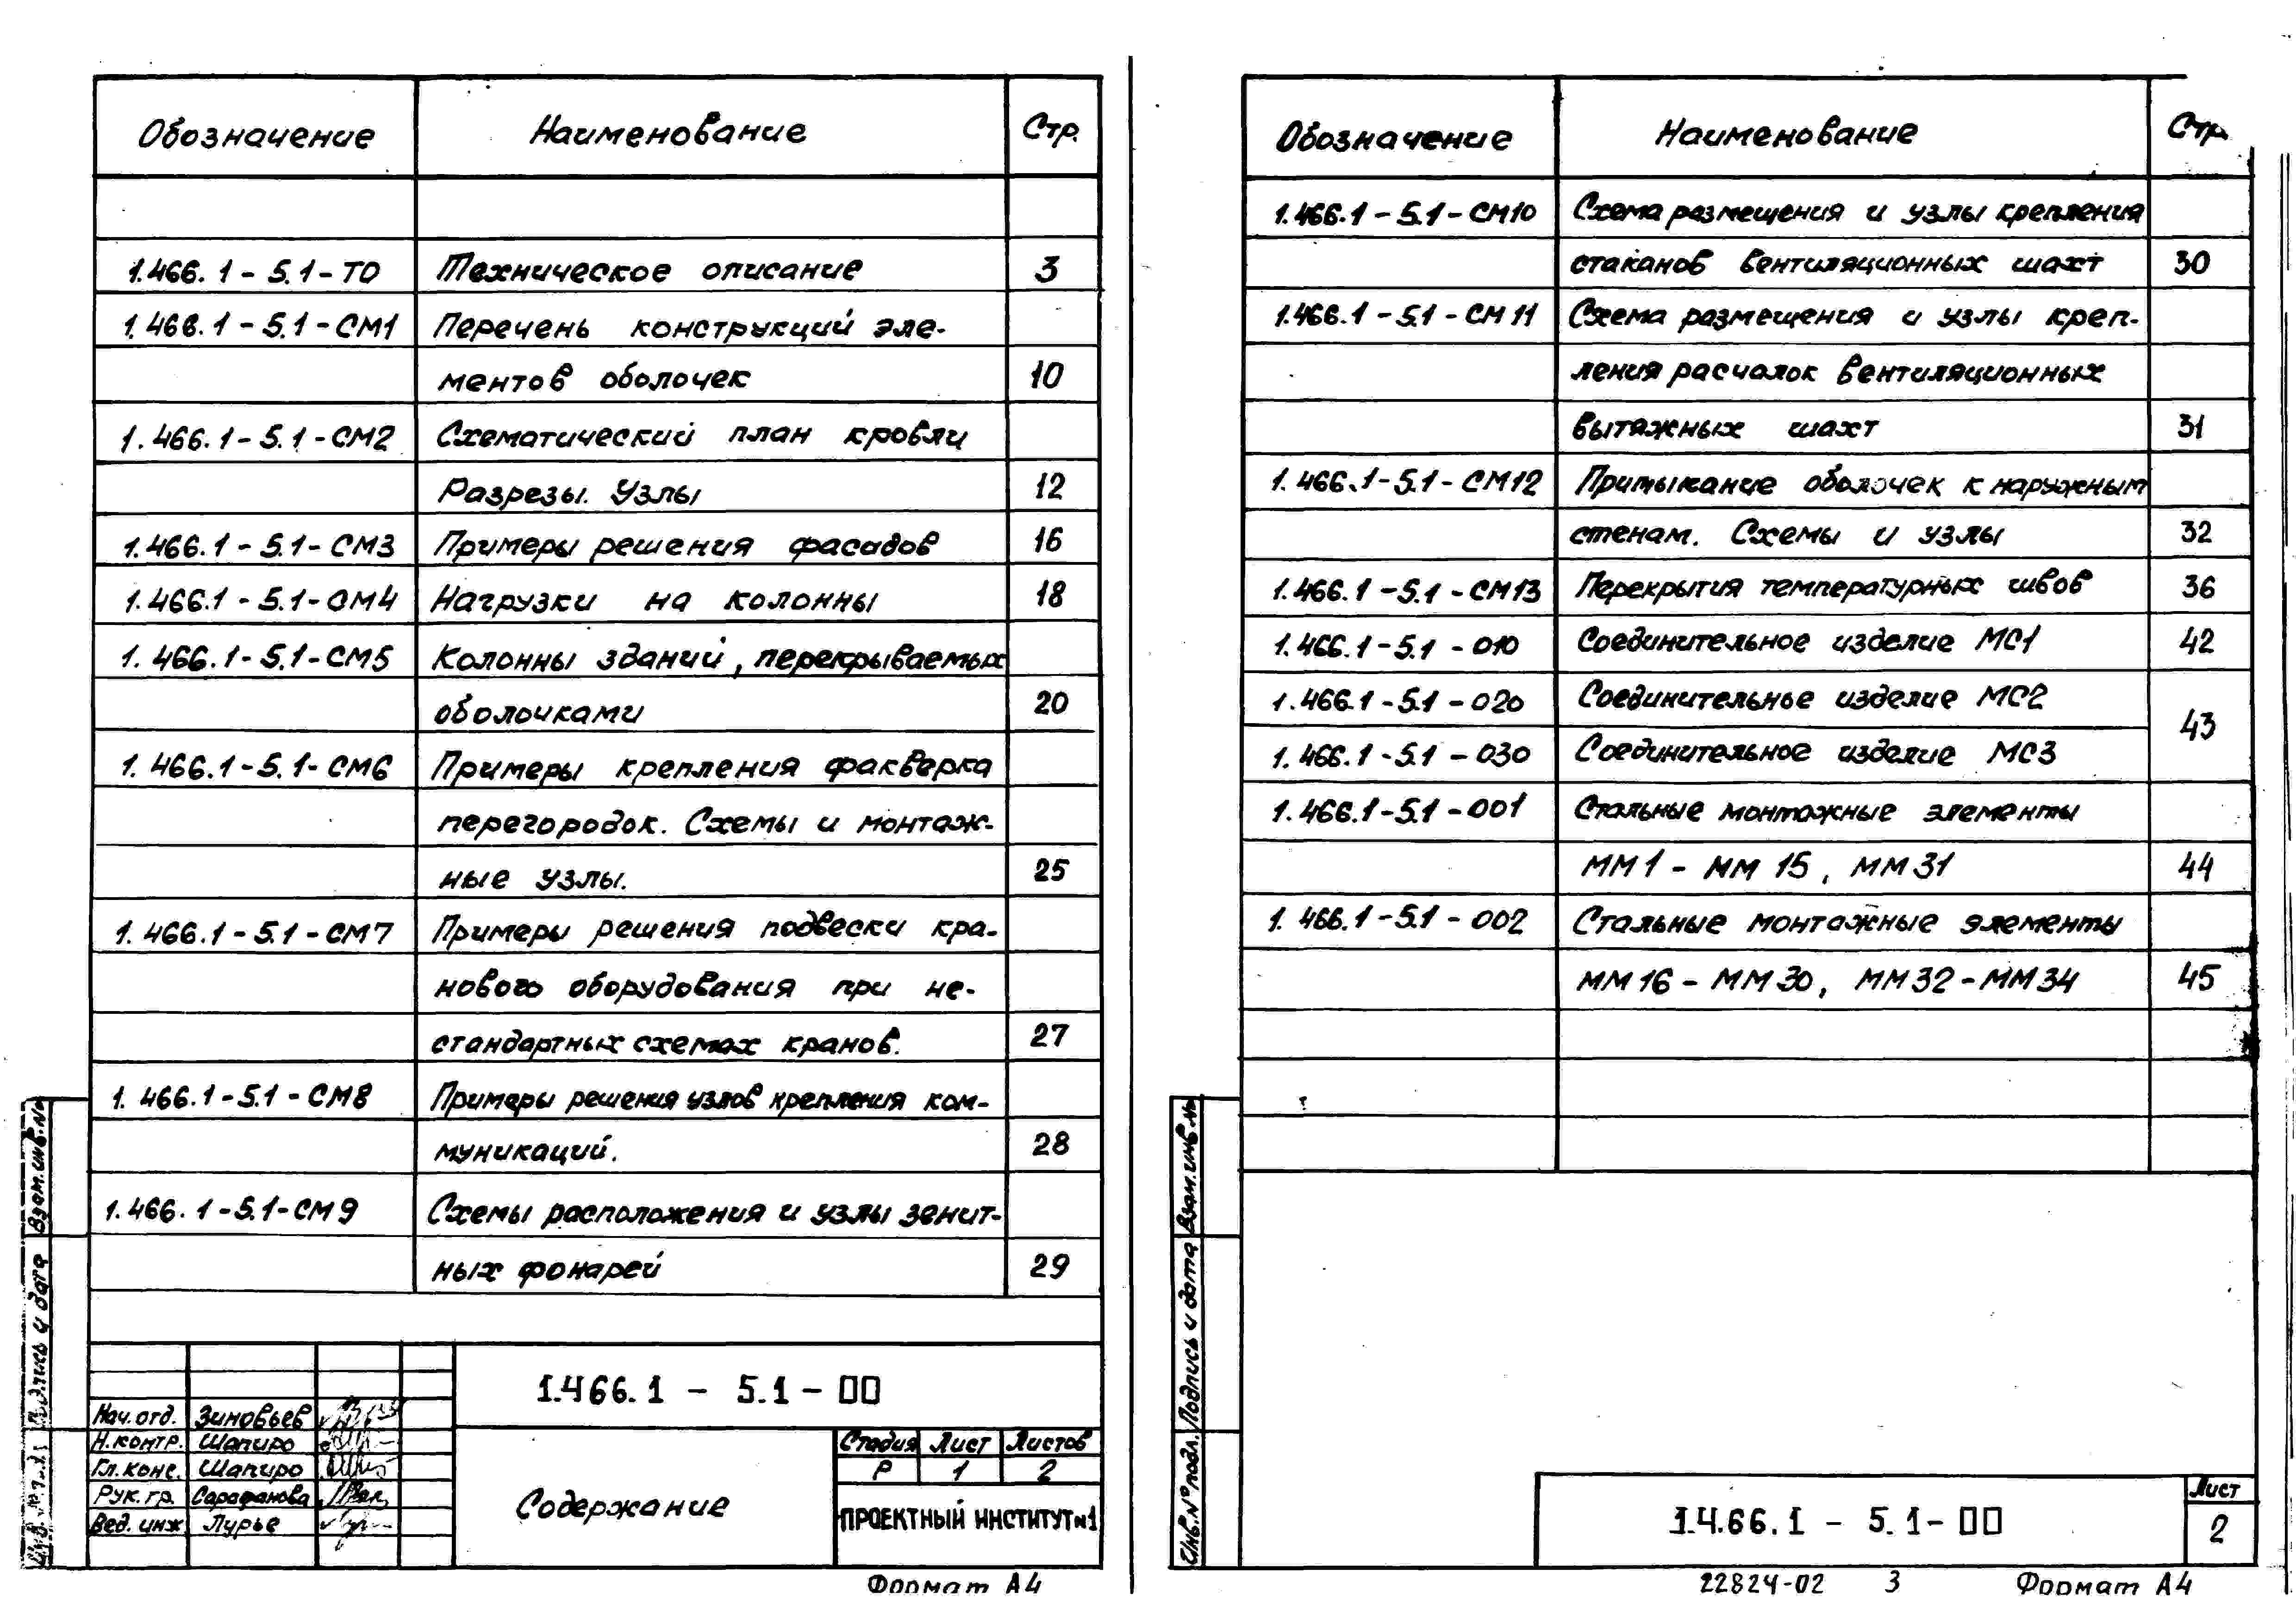 Обозначение Наименование Стр.
1.466.1-5.1-ТО Техническое описание 3
1.466.1-5.1-СМ1 Перечень конструкций эле-
ментов оболочек 10
1.466.1-5.1-СМ2 Схематический план кровли
Разрезы. Узлы 12
1.466.1-5.1-СМ3 Примеры решения фасадов 16
1.466.1-5.1-СМ4 Нагрузки на колонны 18
1.466.1-5.1-СМ5 Колонны зданий, перекрываемых
оболочками 20
1.466.1-5.1-СМ6 Примеры крепления фахверка
перегородок. Схемы и монтаж-
ные узлы. 25
1.466.1-5.1-СМ7 Примеры решения подвески кра-
нового оборудования при не-
стандартных схемах кранов. 27
1.466.1-5.1-СМ8 Примеры решения узлов крепления ком-
муникаций. 28
1.466.1-5.1-СМ9 Схемы расположения и узлы зенит-
ных фонарей 29
1.466.1 - 5.1 - 00
Нач.отд. Зиновьев
Н.контр. Шапиро
Гл.конс. Шапиро
Рук.гр. Сарафанова
Вед.инж Лурье
Содержание
Стадия Лист Листов
Р 1 2
ПРОЕКТНЫЙ ИНСТИТУТ №1
Формат А4
Подпись и дата
Взам.инв.№
Обозначение Наименование Стр.
1.466.1-5.1-СМ10 Схема размещения и узлы крепления
стаканов вентиляционных шахт 30
1.466.1-5.1-СМ11 Схема размещения и узлы креп-
ления расчалок вентиляционных
вытяжных шахт 31
1.466.1-5.1-СМ12 Примыкание оболочек к наружным
стенам. Схемы и узлы 32
1.466.1-5.1-СМ13 Перекрытия температурных швов 36
1.466.1-5.1-010 Соединительное изделие МС1 42
1.466.1-5.1-020 Соединительное изделие МС2
43
1.466.1-5.1-030 Соединительное изделие МС3
1.466.1-5.1-001 Стальные монтажные элементы
ММ1 - ММ15, ММ31 44
1.466.1-5.1-002 Стальные монтажные элементы
ММ16 - ММ30, ММ32-ММ34 45
Инв.№подл. Подпись и дата Взам.инв.№
1.466.1 - 5.1-00
Лист
2
22824-02 3 Формат А4